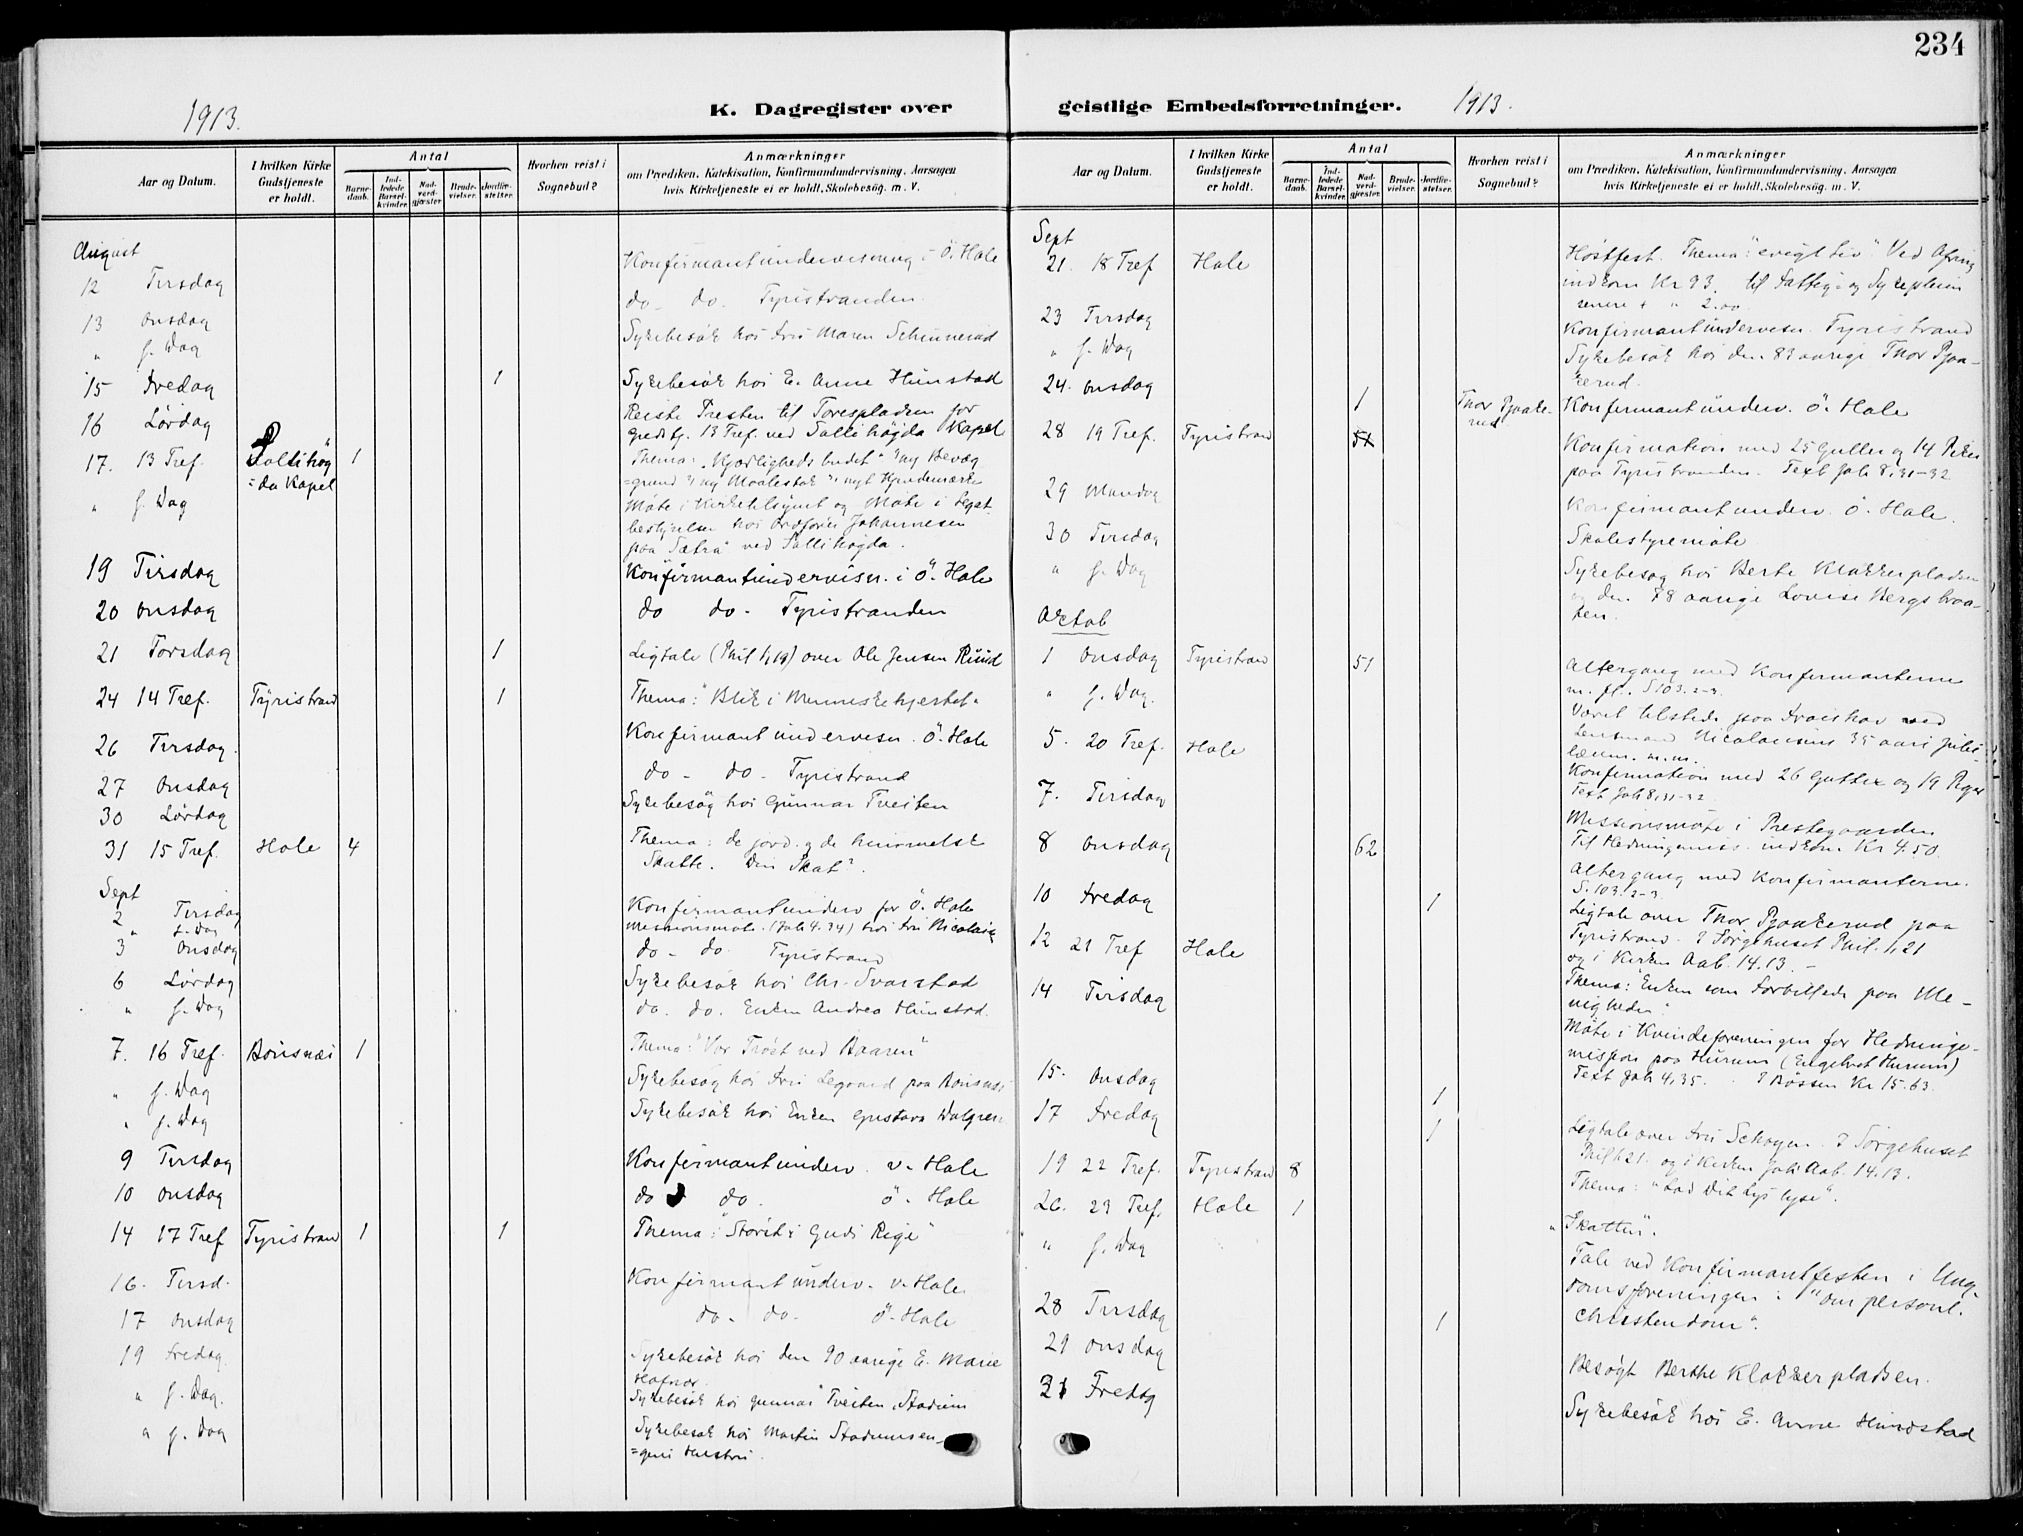 234
1913.
K. Dagregister over
Aar og Datum.
I hvilken Kirke Gudstjeneste er holdt.
Antal
Barne-daab.
Ind-ledede Barsel-kvinder.
Nad-verd-gjæster.
Brude-vielser.
Jordfæ-stelser.
Hvorhen reist i Sognebud?
Anmærkninger
om Prædiken, Katekisation, Konfirmandundervisning, Aarsagen
hvis Kirketjeneste ei er holdt, Skolebesøg, m. V.
August
12 Tirsdag Konfirmantundervisning i Ö. Hole
13 Onsdag do- do. Tyristranden.
" s. Dag Sykebesøk hos Fru Maren
15 Fredag 1 Sykebesøk hos E. Anne Hunstad
16 Lørdag Reiste Presten til for
17. 13 Tref. Sollihøg 1 Gudstj. 13 Tref. ved Sollihøgda Kapel
=da Kapel Thema: "Kjærligheds budet" "ny Bevæg
=grund" "ny Maalestok" "nyt Kjendemærke
" s. Dag Møte i Kirketilsynet og Møte i Legat
bestyrelse hos Ordfører Johannesen
paa Sætra ved Sollihøgda.
19 Tirsdag Konfirmantundervisn. i Ö. Hole
20 Onsdag do do- Tyristranden
21 Torsdag 1 Ligtale (Phil 1,19) over Ole Jensen Ruud
24 14 Tref. Tyristrand 1 Thema: "Blik i Menneskehjertet"
26 Tirsdag. Konfirmantundervisn. Ö. Hole
27 Onsdag do- do- Tyristrand
30 Lørdag Sykebesøg hos Gunnar Tveiten
31 15 Tref. Hole 4 Thema: de jord. og de himmelske
Skatte. Din Skat?
Sept
2 Tirsdag Konfirmantunderv for Ö. Hole
" s. Dag Missionsmøte. (Joh 4.34) hos Fru Nicolaisen
3 Onsdag do- do Tyristrand
6 Lørdag Sykebesøk hos Chr. Svarstad
" s. Dag do. do. Enken Andrea Hunstad.
7. 16 Tref. Bönsnæs 1 Thema: "Vor Trøst ved Baaren"
" s. Dag Sykebesøg hos Fru Legaard paa Bönsnæs
" s. Dag Sykebesøk hos Enken Gustava Dalgren
9 Tirsdag Konfirmantunderv. v. Hole
10 Onsdag do do. Ö. Hole
14 17 Tref Tyristrand 1 1 Thema: "Störst i Guds Rige"
16. Tirsd. Konfirmantunderv. v. Hole
17 Onsdag do. do. Ö. Hole
19 Fredag. Sykebesøk hos den 90 aarige E. Marie
" s. Dag. Sykebesøk hos Gunnar Tveiten, Stadum
" s. Dag Sykebesøk hos Martin Stadumsen-
=gens Hustru.
geistlige Embedsforretninger.
1913.
Aar og Datum.
I hvilken Kirke Gudstjeneste er holdt.
Antal
Barne-daab.
Ind-ledede Barsel-kvinder.
Nad-verd-gjæster.
Brude-vielser.
Jordfæ-stelser.
Hvorhen reist i Sognebud?
Anmærkninger
om Prædiken, Katekisation, Konfirmandundervisning, Aarsagen
hvis Kirketjeneste ei er holdt, Skolebesøg, m. V.
Sept
21. 18 Tref Hole Høstfest. Thema: "evigt Liv". Ved Ofring
indkom Kr 93. til Fattig- og Sykepleien
senere + " 2.00
23 Tirsdag Konfirmantundervisn. Tyristrand
" s. Dag Sykebesøk hos den 83 aarige Thor Pjaa-
kerud.
24. Onsdag 1 Thor Pjaake-rud Konfirmantunderv. Ö. Hole
28 19 Tref. Tyristrand 51 Konfirmation med 25 Gutter og 14 Piker
paa Tyristranden. Text Joh 8,31-32
29 Mandag Konfirmantunderv. Ö. Hole.
30 Tirsdag Skolestyremøte
" s. Dag Sykebesøg hos Berte Klokkerpladsen
og den 78 aarige Lovise Bergsbraa-
ten.
Oktob
1 Onsdag Tyristrand 51 Altergang med Konfirmanterne
m. fl. S 103. 2-3.
" s. Dag. Været tilstede paa ved
Lensmand Nicolaisens 35 aars Jubi-
læum. m.m.
5. 20 Tref. Hole Konfirmation med 26 Gutter og 19 Piger
Text Joh 8,31-32
7. Tirsdag Missionsmøte i Prestegaarden
Til Hedningemiss. indkom Kr 4.50.
8 Onsdag 62 Altergang med Konfirmanterne.
S. 103. 2-3.
10 Fredag 1 Ligtale over Thor Pjaakerud paa
Tyristrand. I Sørgehuset Phil. 1,21
og i Kirken Aab. 14.13.
12 21 Tref Hole Thema: Enken som Forbillede paa Me-
nigheden"
14 Tirsdag Møte i Kvindeforeningen for Hedninge-
mission paa Hurum (Engebret Hurum)
Text Joh 4,35. I Bøssen Kr 15.63.
15. Onsdag
17 Fredag 1 1 Ligtale over Fru . I Sørgehuset
Phil 1.21. og i Kirken Joh. Aab. 14.13.
19 22 Tref. Tyristrand 8 Thema: "Lad Dit Lys lyse".
26. 23 Tref. Hole 1 " Skatten".
" s. Dag Tale ved Konfirmantfesten i Ung-
domsforeningen: "om personl.
Christendom".
28 Tirsdag 1
29 Onsdag Besøgt Berthe Klokkerpladsen.
31 Fredag Sykebesøk hos E. Anne Hundstad